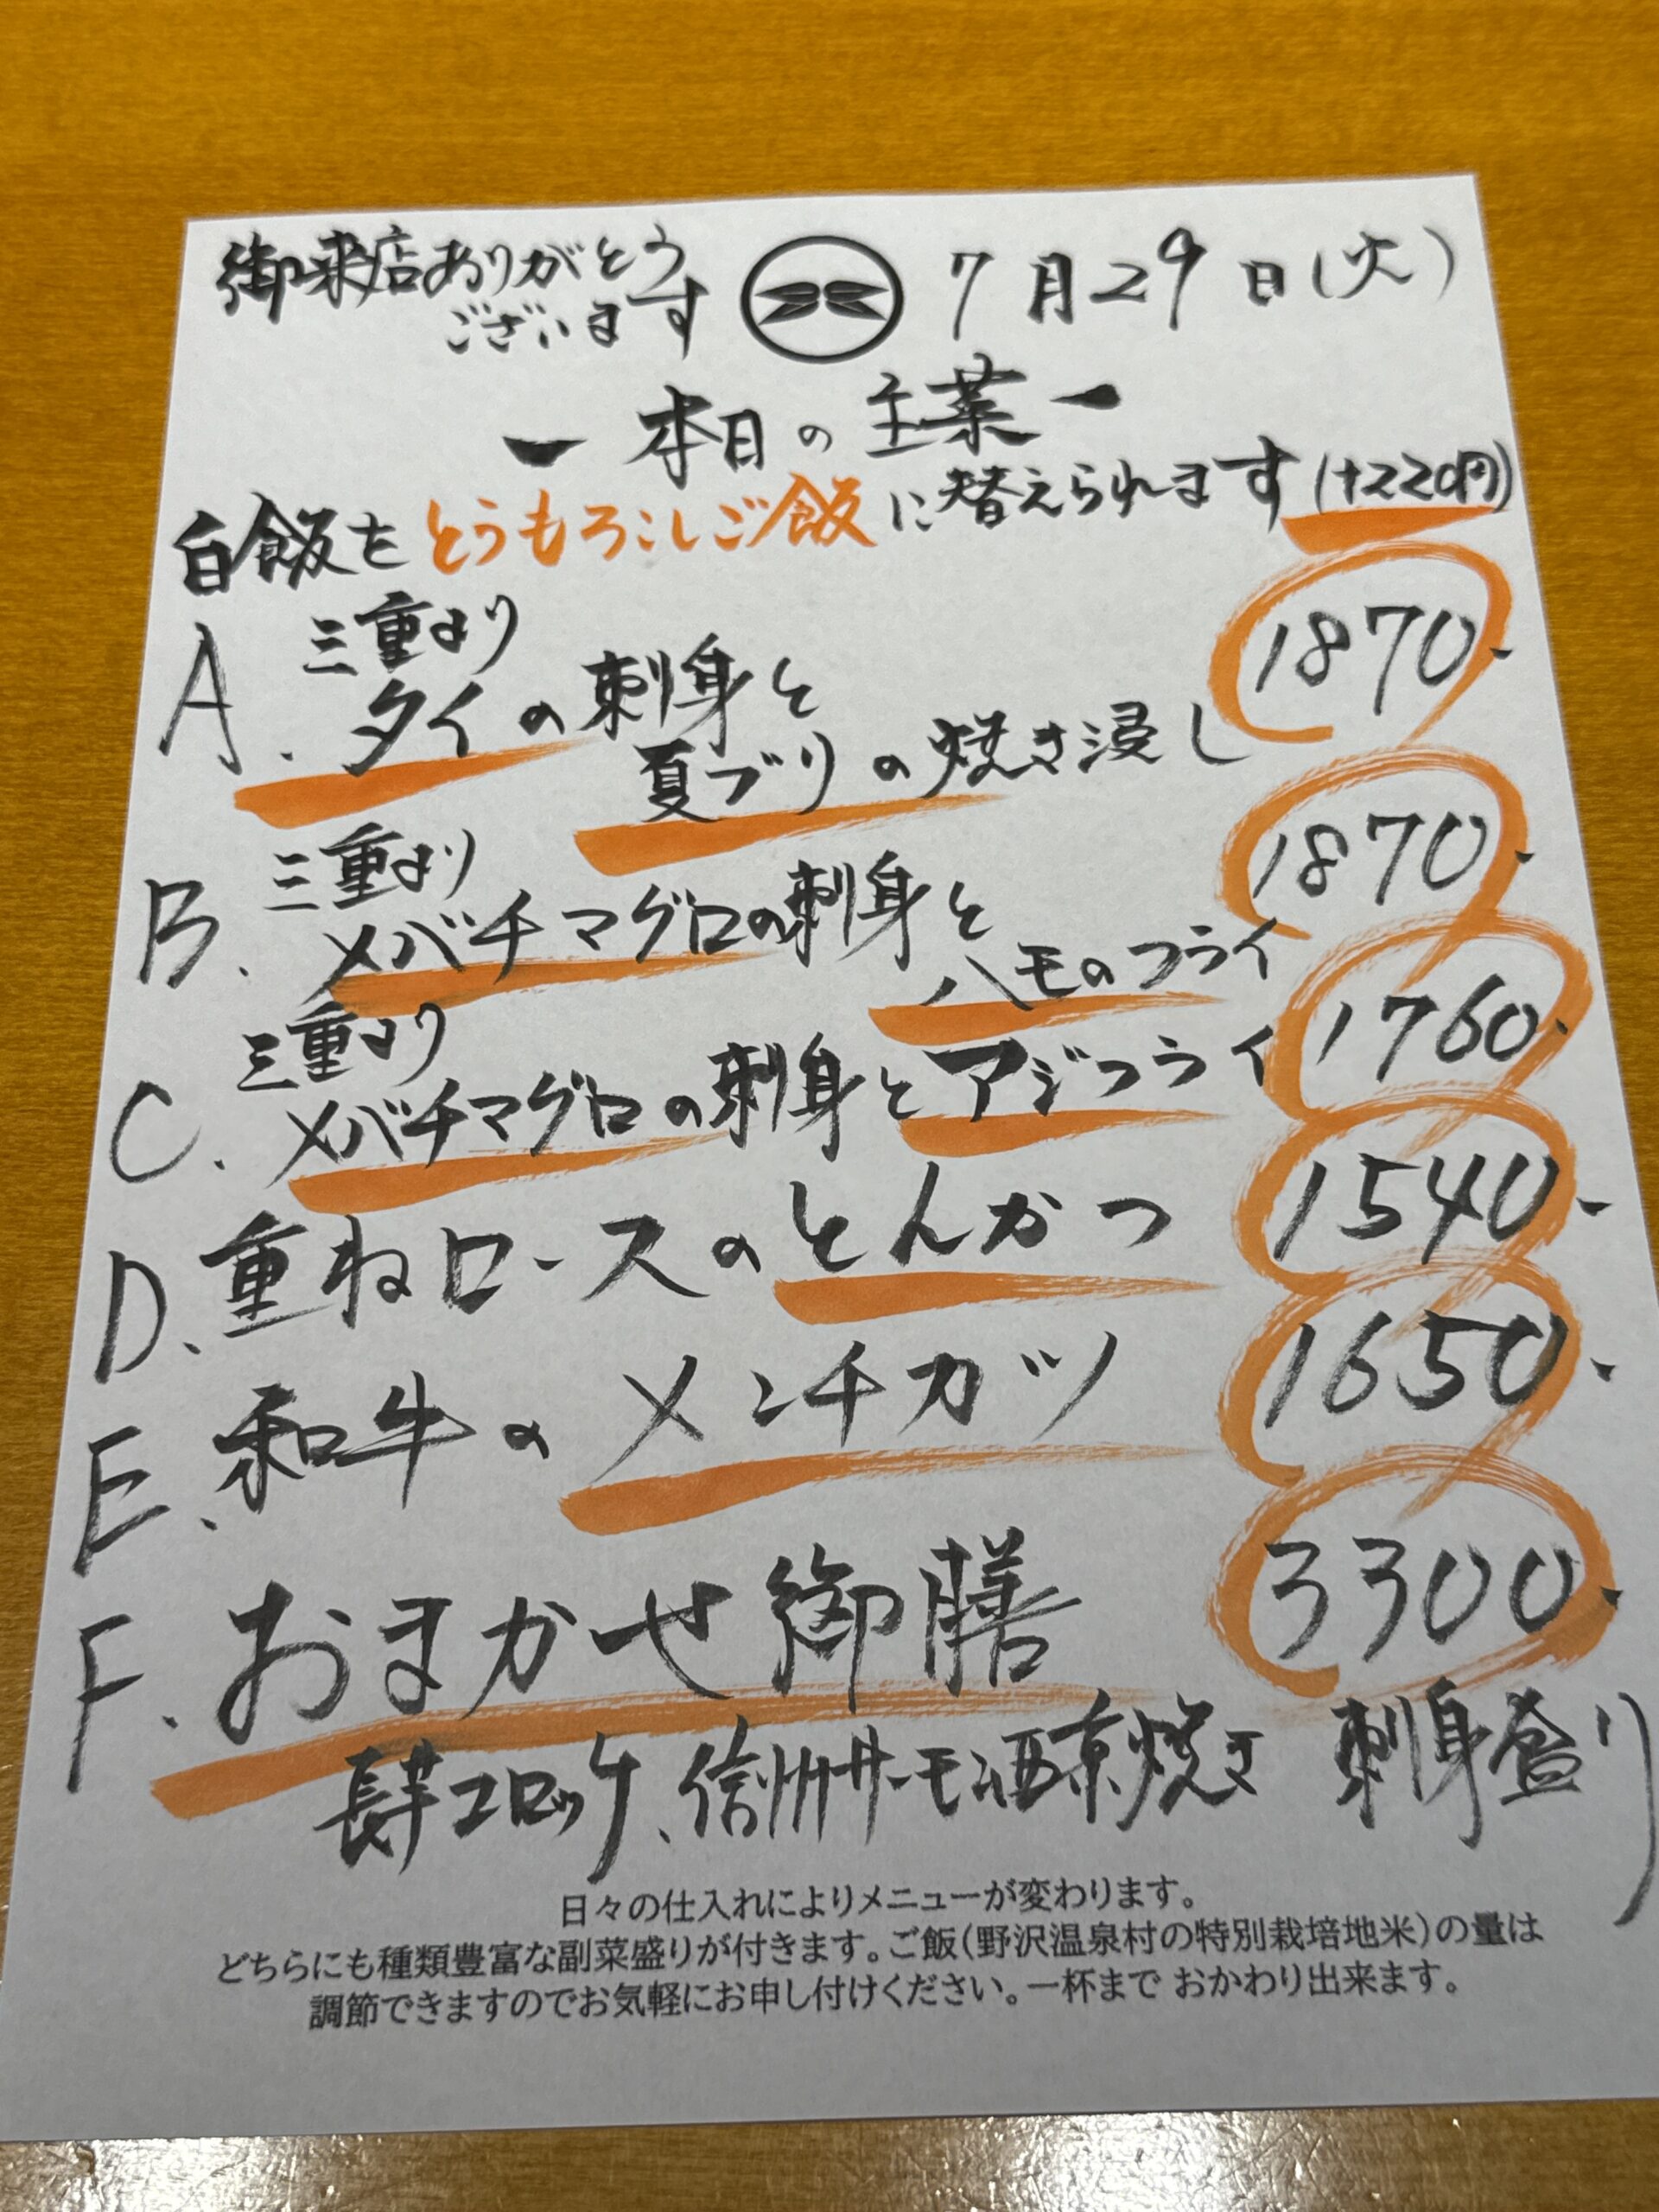 御来店ありがとう
ございます
7月29日(火)
ー本日の主菜ー
白飯をとうもろこしご飯に替えられます(+220円)
三重より
A. タイの刺身と
夏ブリの焼き浸し
1870.
三重より
B. メバチマグロの刺身と
ハモのフライ
1870.
三重より
C. メバチマグロの刺身とアジフライ 1760.
D. 重ねロースのとんかつ 1540.
E. 和牛のメンチカツ 1650.
F. おまかせ御膳 3300.
長芋コロッケ、信州サーモン西京焼き 刺身盛り
日々の仕入れによりメニューが変わります。
どちらにも種類豊富な副菜盛りが付きます。ご飯(野沢温泉村の特別栽培地米)の量は
調節できますのでお気軽にお申し付けください。一杯まで おかわり出来ます。